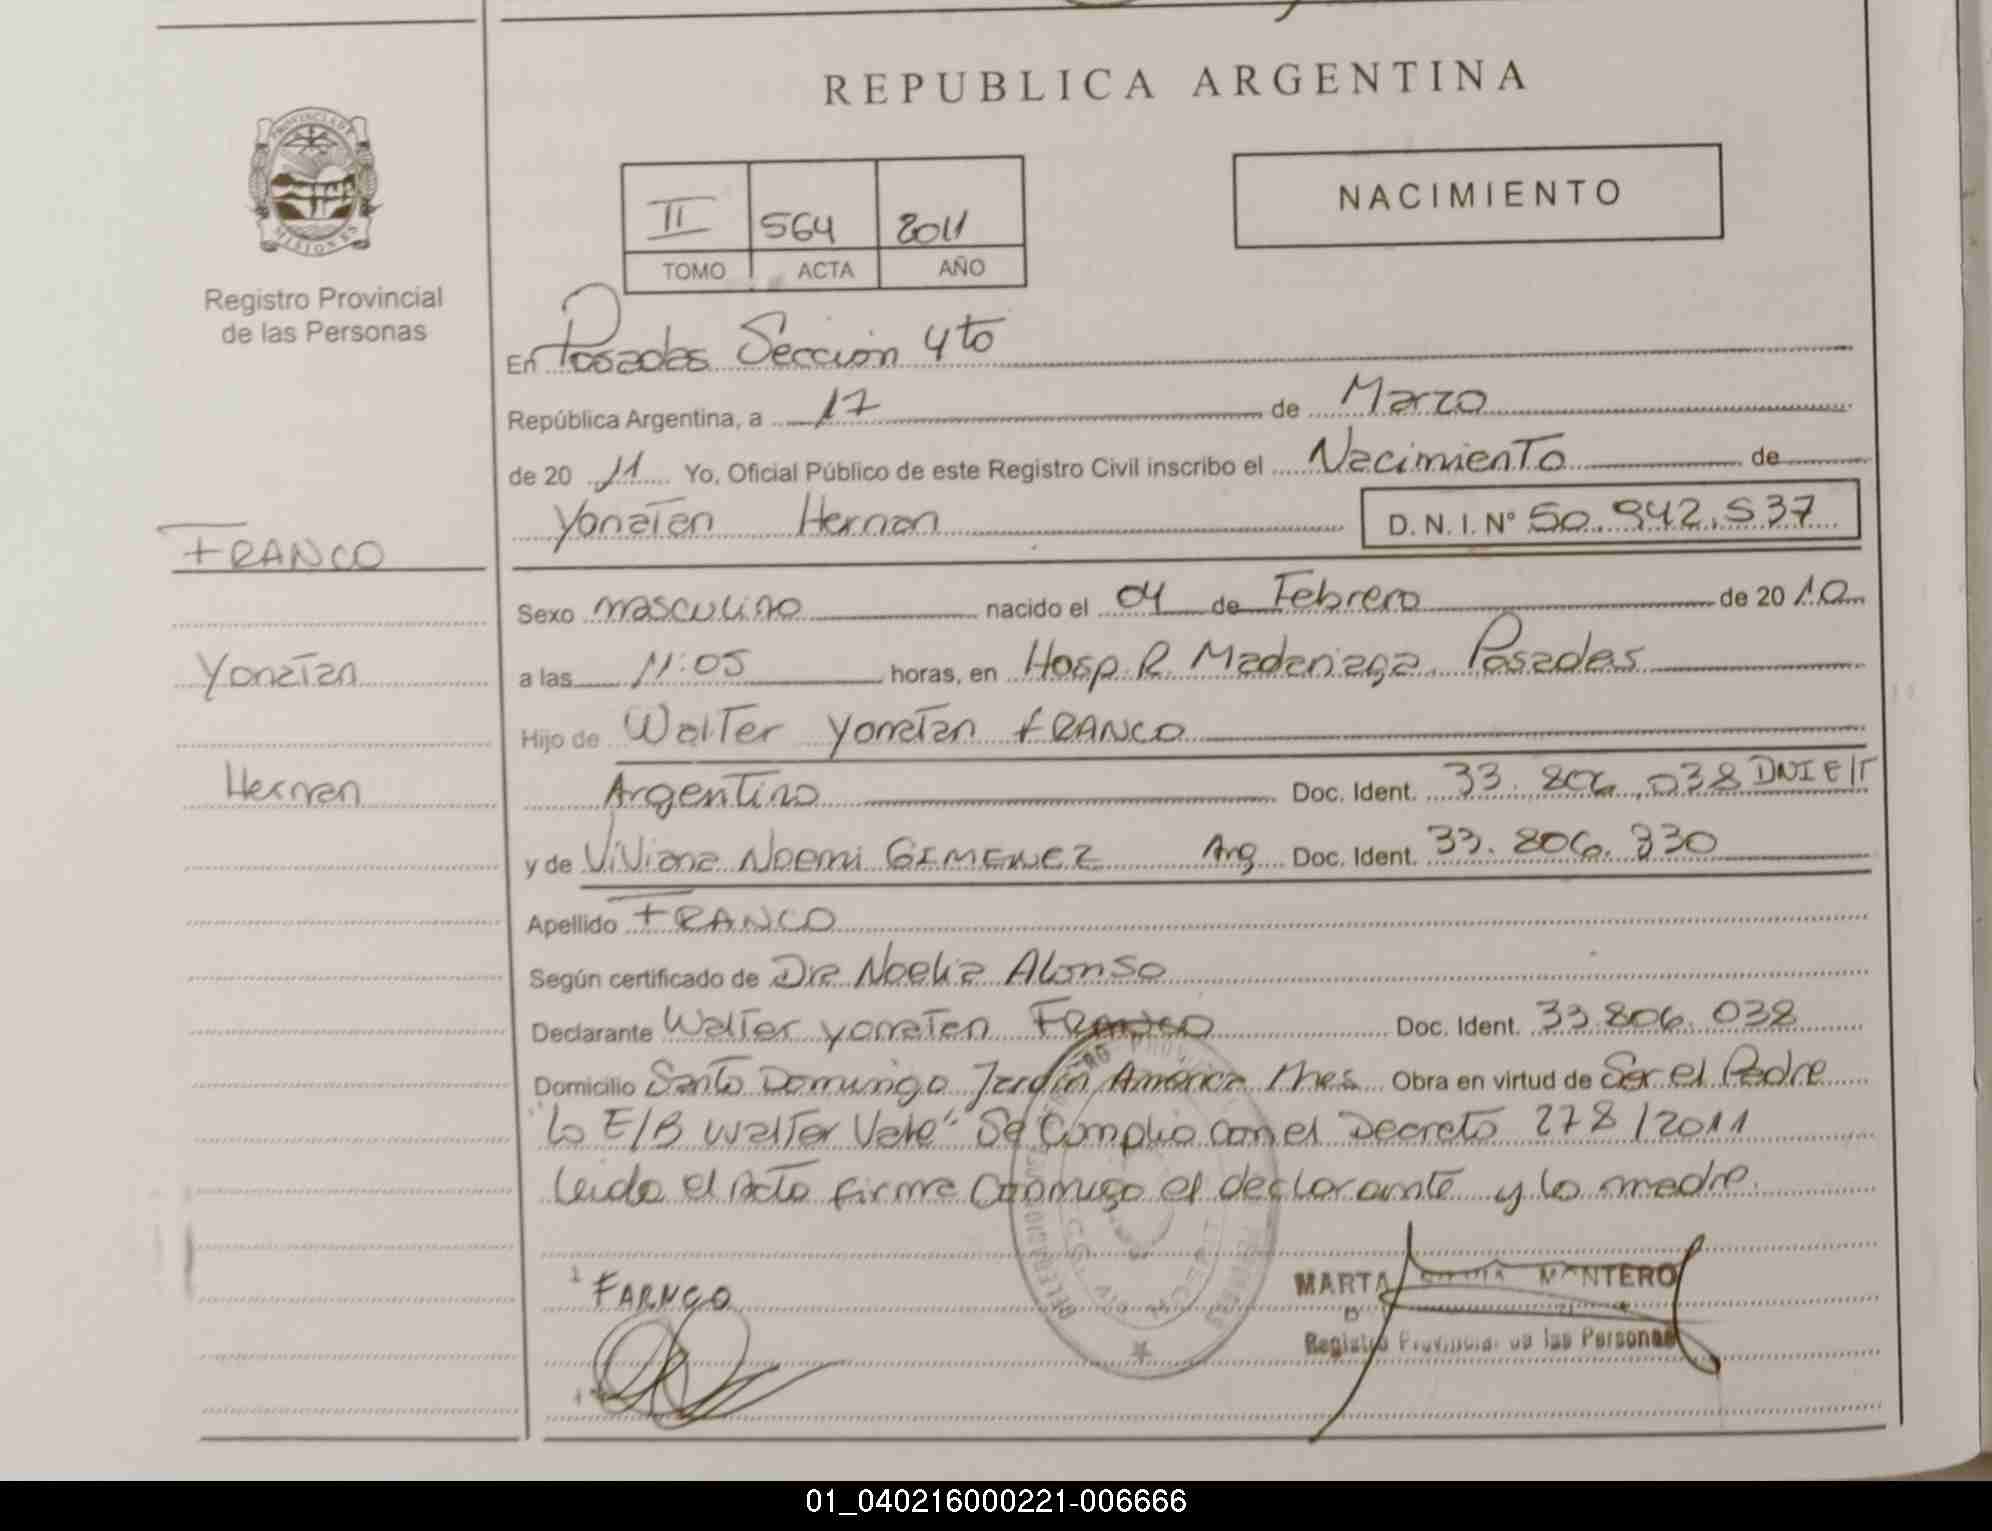 REPUBLICA ARGENTINA
PROVINCIA DE
MISIONES
Registro Provincial
de las Personas
II 564 2011
TOMO ACTA AÑO
NACIMIENTO
En Posadas Sección 4to
República Argentina, a 17 de Marzo
de 20 11 Yo, Oficial Público de este Registro Civil inscribo el Nacimiento de
Yonatan Hernan D. N. I. N° 50.942.537
FRANCO
Yonatan
Hernan
Sexo masculino nacido el 04 de Febrero de 20 10
a las 11:05 horas, en Hosp. R. Madariaga. Posadas
Hijo de Walter Yonatan FRANCO
Argentino Doc. Ident. 33.806.038 DNI E/T
y de Viviana Noemi GIMENEZ Arg Doc. Ident. 33.806.330
Apellido FRANCO
Según certificado de Dra Noelia Alonso
Declarante Walter Yonatan Franco Doc. Ident. 33 806.038
Domicilio Santo Domingo Jardin America Mnes Obra en virtud de Ser el Padre
"Lo E/B Walter Vale" Se Cumplio con el Decreto 278/2011
Leida el Acta firma Conmigo el declarante y la madre.
FARNCO
MARTA MONTERO
Registro Provincial de las Personas
01_040216000221-006666